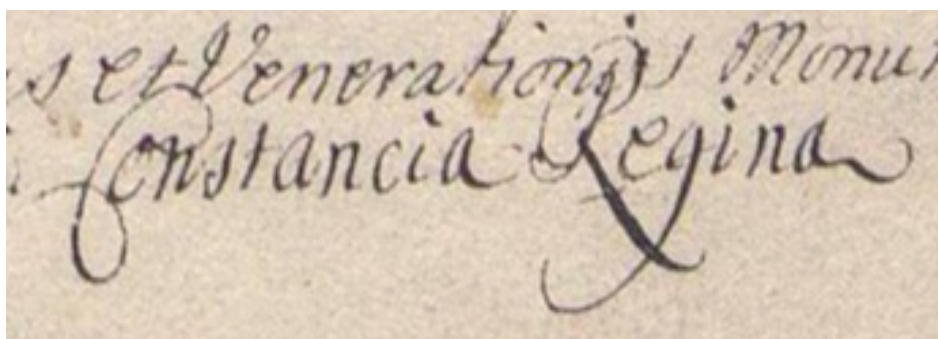 et Venerationis
Constancia Regina